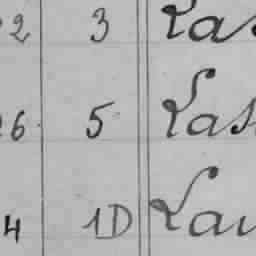 2 3 Las
26 5 Las
4 1D Lau